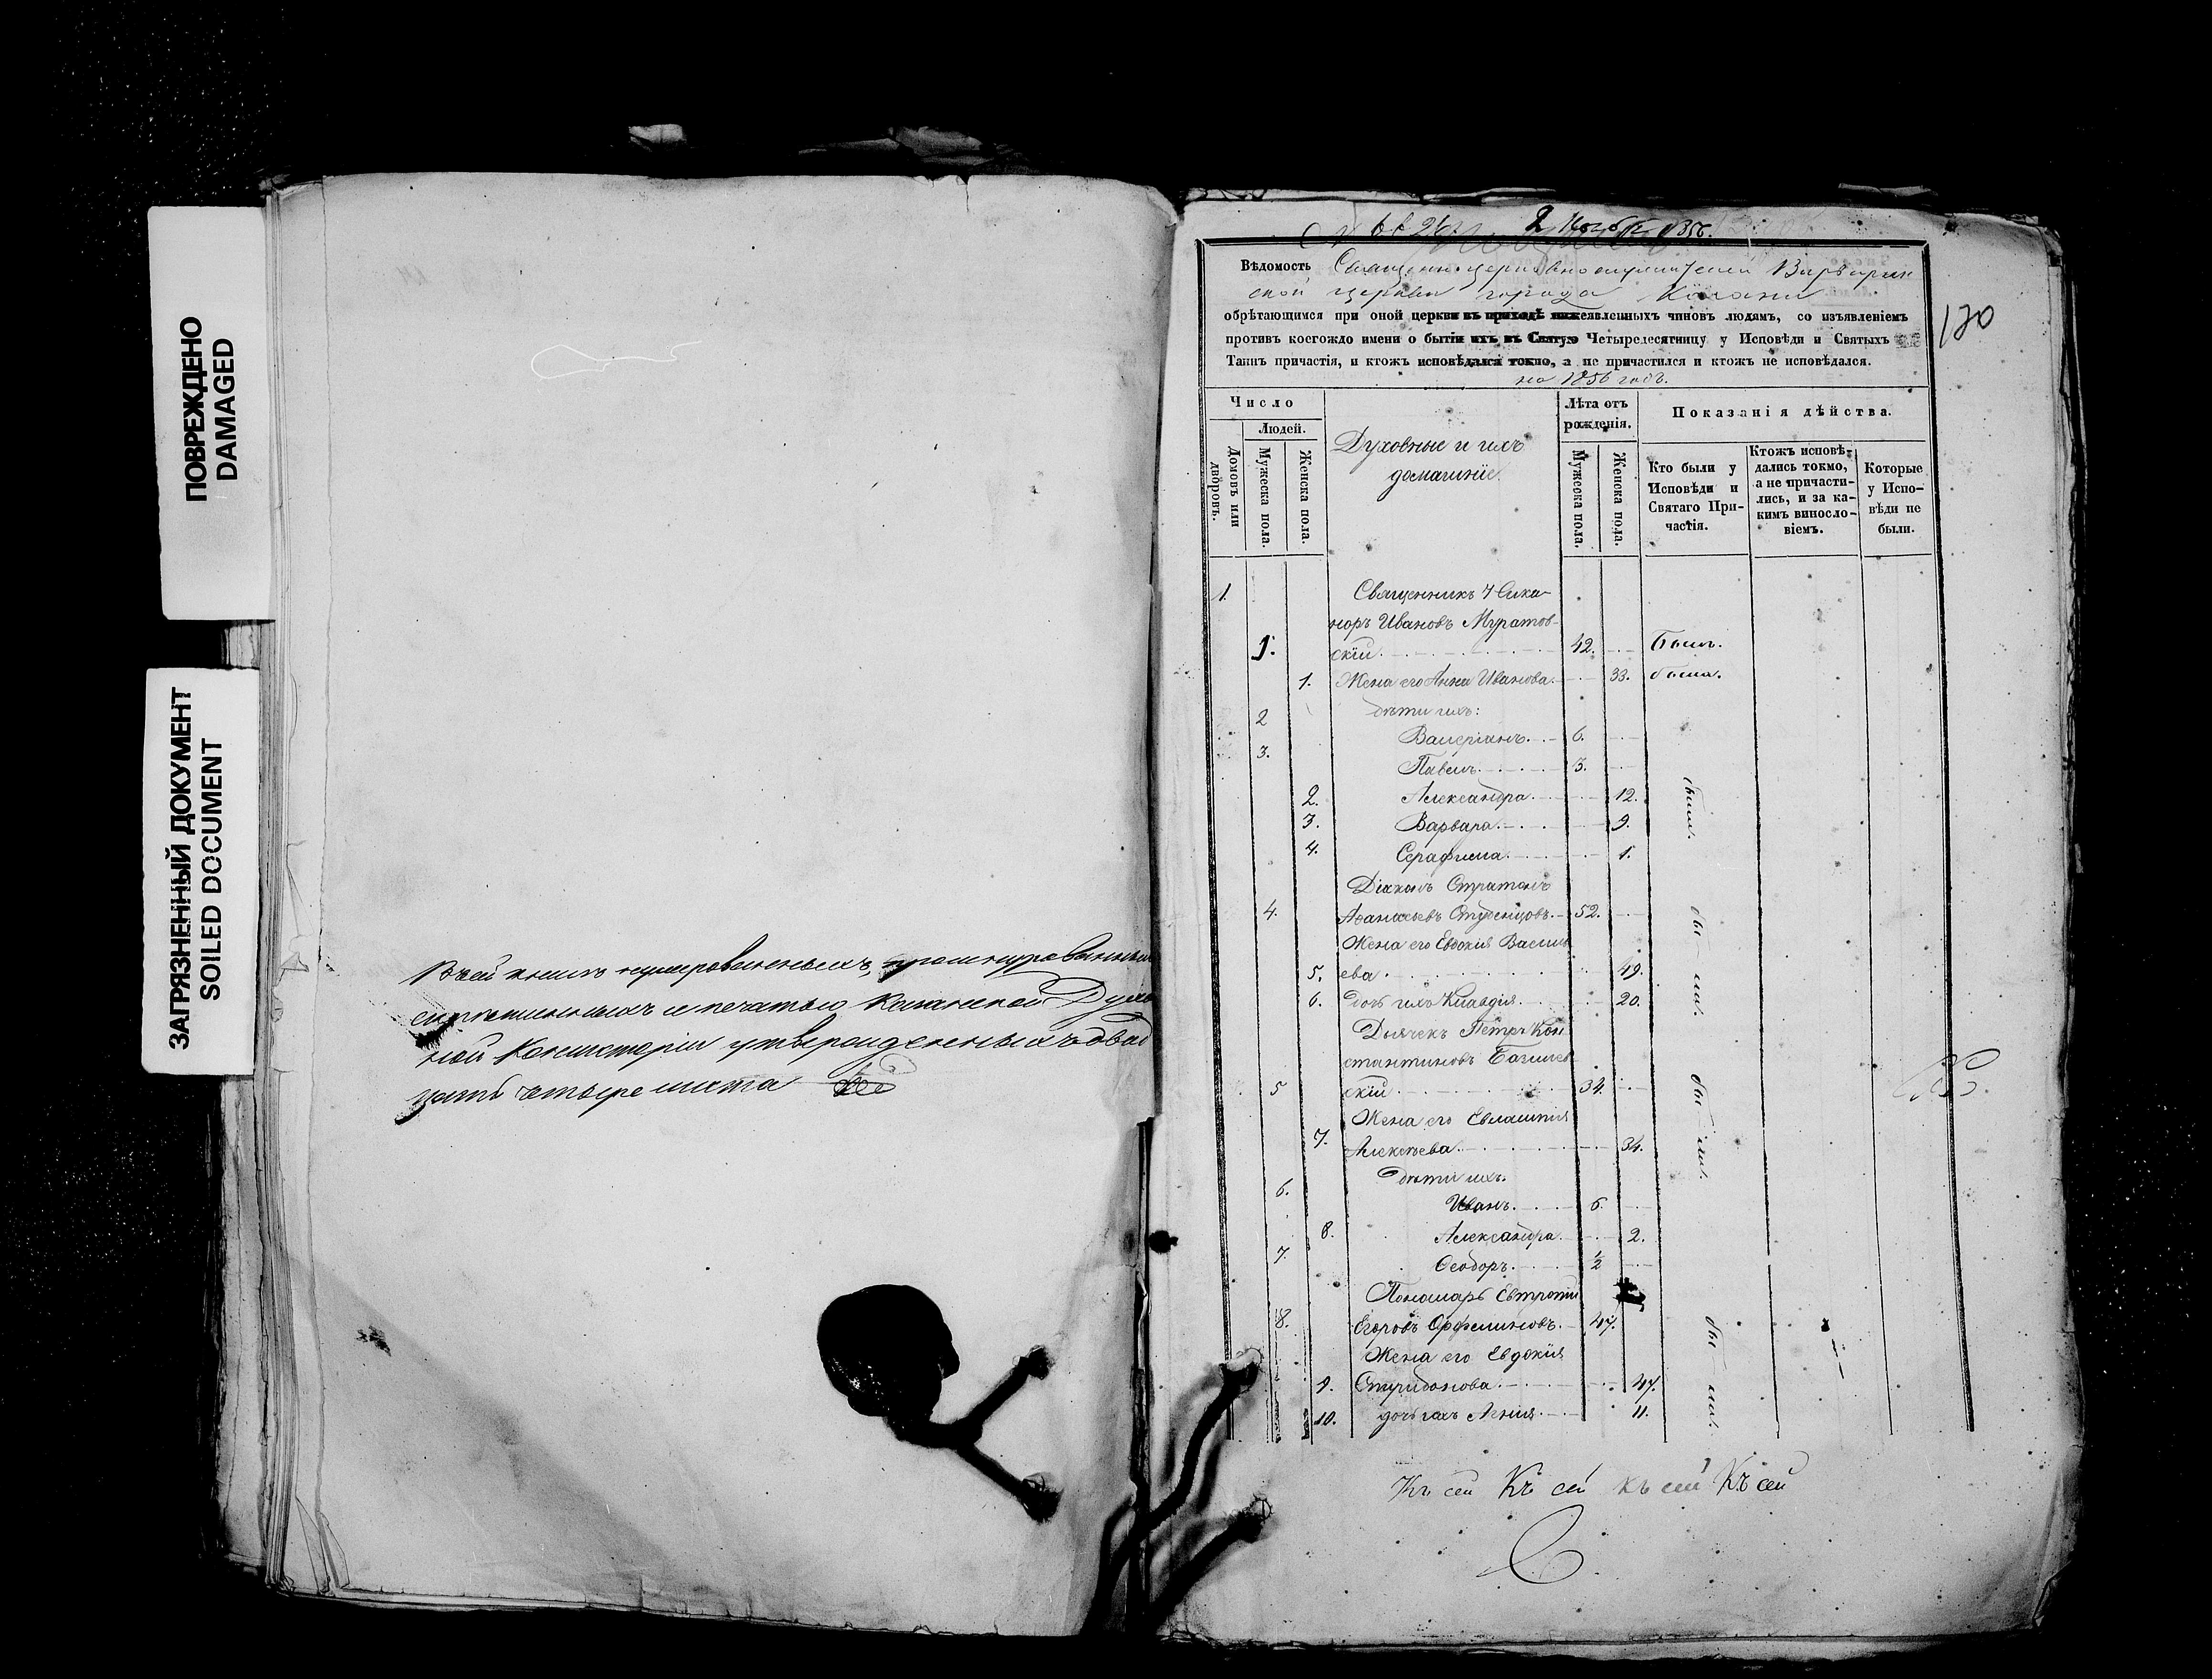 ПОВРЕЖДЕНО
DAMAGED
ЗАГРЯЗНЕННЫЙ ДОКУМЕНТ
SOILED DOCUMENT
нумерованныхъ, прошнурованны
и печатью Казанской Духо
ной Консисторіи утвержденныхъ двад
цать четыре листа
1856.
Вѣдомость Священно-церковнослужителей Варварин
ской церкви города Казани
обрѣтающимся при оной церкви въ приходѣ нижеявленныхъ чиновъ людямъ, со изъявленіемъ
противъ коегождо имени о бытіи ихъ въ Святую Четыредесятницу у Исповѣди и Святыхъ
Таинъ причастія, и ктожъ исповѣдался токмо, а не причастился и ктожъ не исповѣдался.
на 1856 годъ.
130
Число
Людей.
Домовъ или дворовъ.
Мужеска пола.
Женска пола.
Духовные и ихъ
домашніе.
Лѣта отъ
рожденія.
Мужеска пола.
Женска пола.
Показанія дѣйства.
Кто были у
Исповѣди и
Святаго При-
частія.
Ктожъ исповѣ-
дались токмо,
а не причасти-
лись, и за ка-
кимъ виносло-
віемъ.
Которые
у Испо-
вѣди не
были.
1. Священникъ Ника-
норъ Ивановъ Муратов-
1. скій 42. Былъ.
1. Жена его Анна Иванова. 33. была.
2 дѣти ихъ:
Валеріанъ. 6.
3. Павелъ. 3.
2. Александра. 12.
3. Варвара. 9.
4. Серафима. 1.
были.
Діаконъ Стратонъ
4. Аѳанасьевъ Студенцовъ. 52.
Жена его Евдокія Василь
5. ева. 49.
6. Дочь ихъ Клавдія. 20.
бы-ли.
Дьячекъ Петръ Кон
стантиновъ
5 скій 34.
Жена его Евлампія
7. Алексѣева. 34.
Дѣти ихъ.
6. Иванъ. 6.
8. Александра. 2.
7. Ѳеодоръ. 1/2
бы-ли.
Пономарь Евтропій
8. Егоровъ 47.
Жена его Евдокія
9. Спиридонова. 47.
10. дочь ихъ 11.
бы-ли.
Къ сей Къ сей Къ сей Къ сей